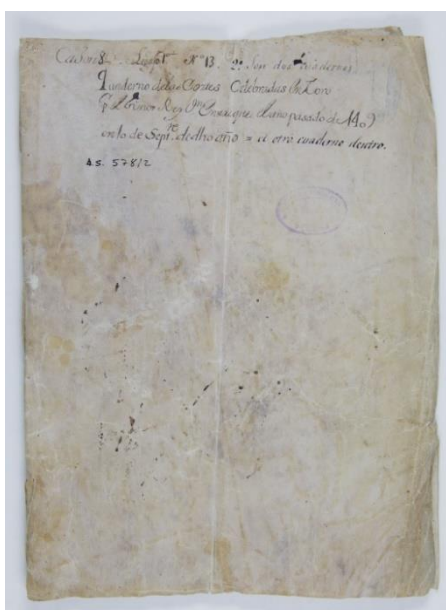 Caxon 8 Legº Nº 13. 2º Son dos cuadernos
Quaderno de las Cortes Celebradas en Toro
Rey Dn Enrrique el año pasado de 1409
de Septre. de dho año = el otro cuaderno dentro.
A.S. 578/2